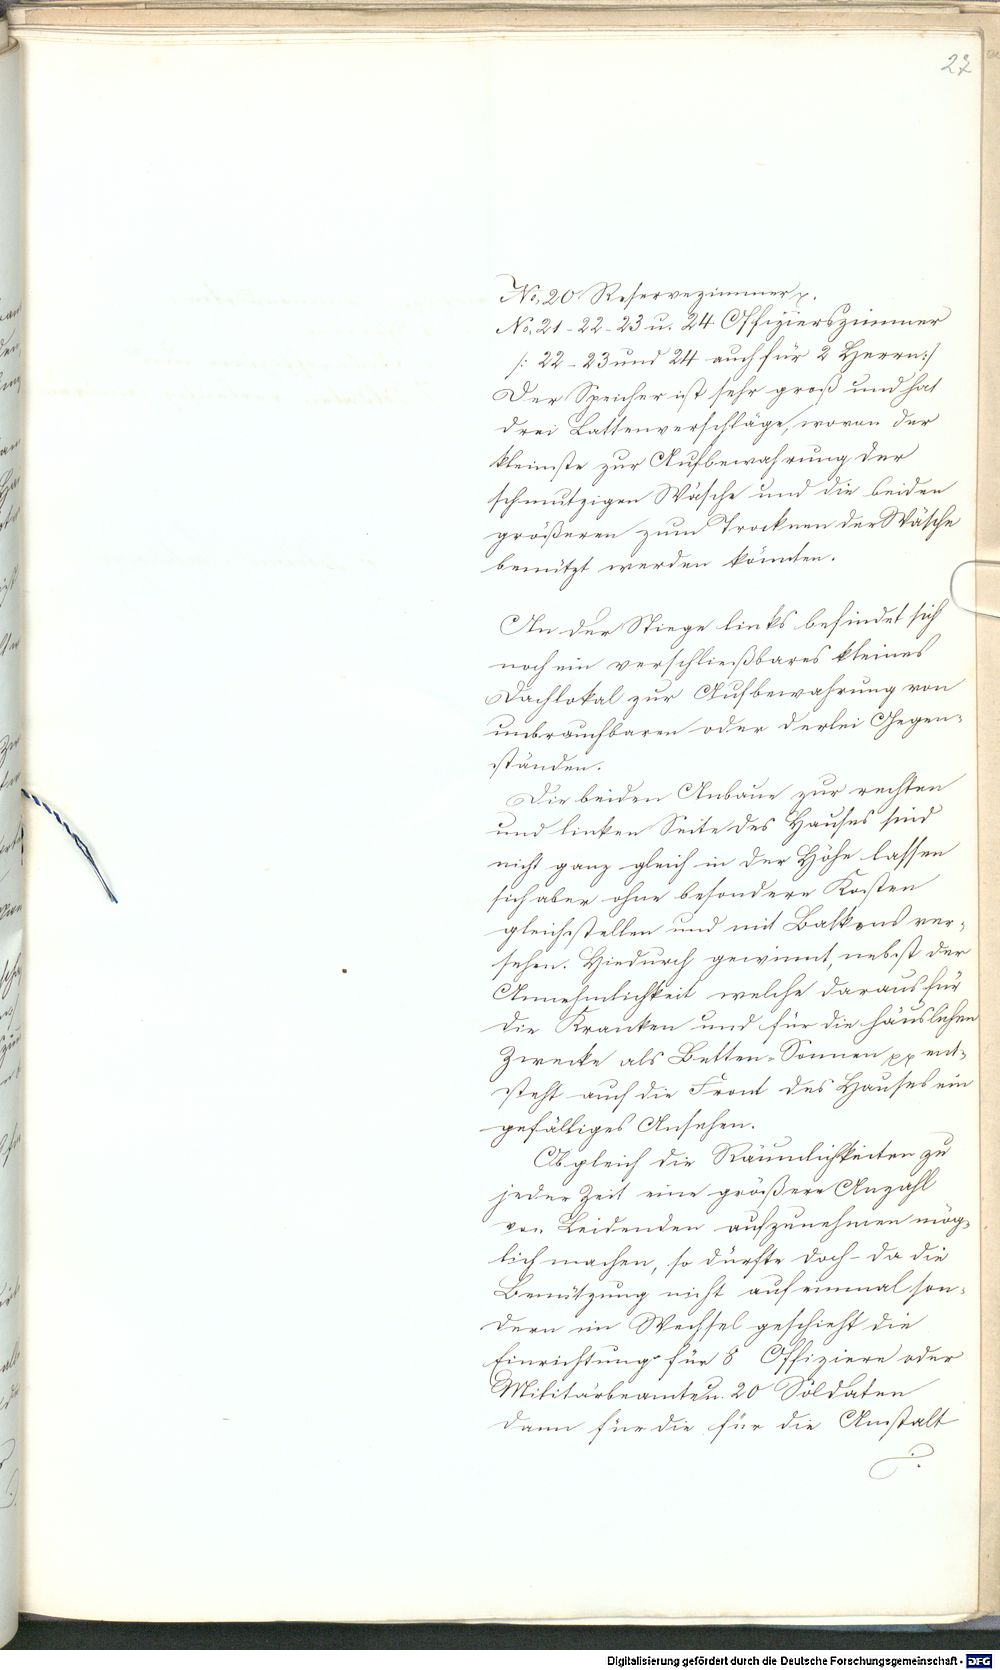 27
No. 20 Reservezimmer.
No. 21 - 22 - 23 u. 24 Offizierszimmer
/: 22 - 23 und 24 auch für 2 Herrn :/
Der Speicher ist sehr groß und hat
drei Lattenverschläge, wovon der
kleinste zur Aufbewahrung der
schmutzigen Wäsche und die beiden
größeren zum Trocknen der Wäsche
benützt werden könnten.
An der Stiege links befindet sich
noch ein verschließbares kleines
Dachlokal zur Aufbewahrung von
unbrauchbaren oder derlei Gegen-
ständen.
Die beiden Anbaue zur rechten
und linken Seite des Hauses sind
nicht ganz gleich in der Höhe lassen
sich aber ohne besondere Kosten
gleichstellen und mit Balkons ver-
sehen. Hiedurch gewinnt, nebst der
Annehmlichkeit welche daraus für
die Kranken und für die häuslichen
Zwecke als Betten-Sonnen ent-
steht auch die Front des Hauses ein
gefälliges Ansehen.
Obgleich die Räumlichkeiten zu
jeder Zeit eine größere Anzahl
von Leidenden aufzunehmen mög-
lich machen, so dürfte doch - da die
Benützung nicht auf einmal son-
dern im Wechsel geschieht die
Einrichtung für 8 Offiziere oder
Militärbeamte u. 20 Soldaten
dann für die für die Anstalt
Digitalisierung gefördert durch die Deutsche Forschungsgemeinschaft - DFG